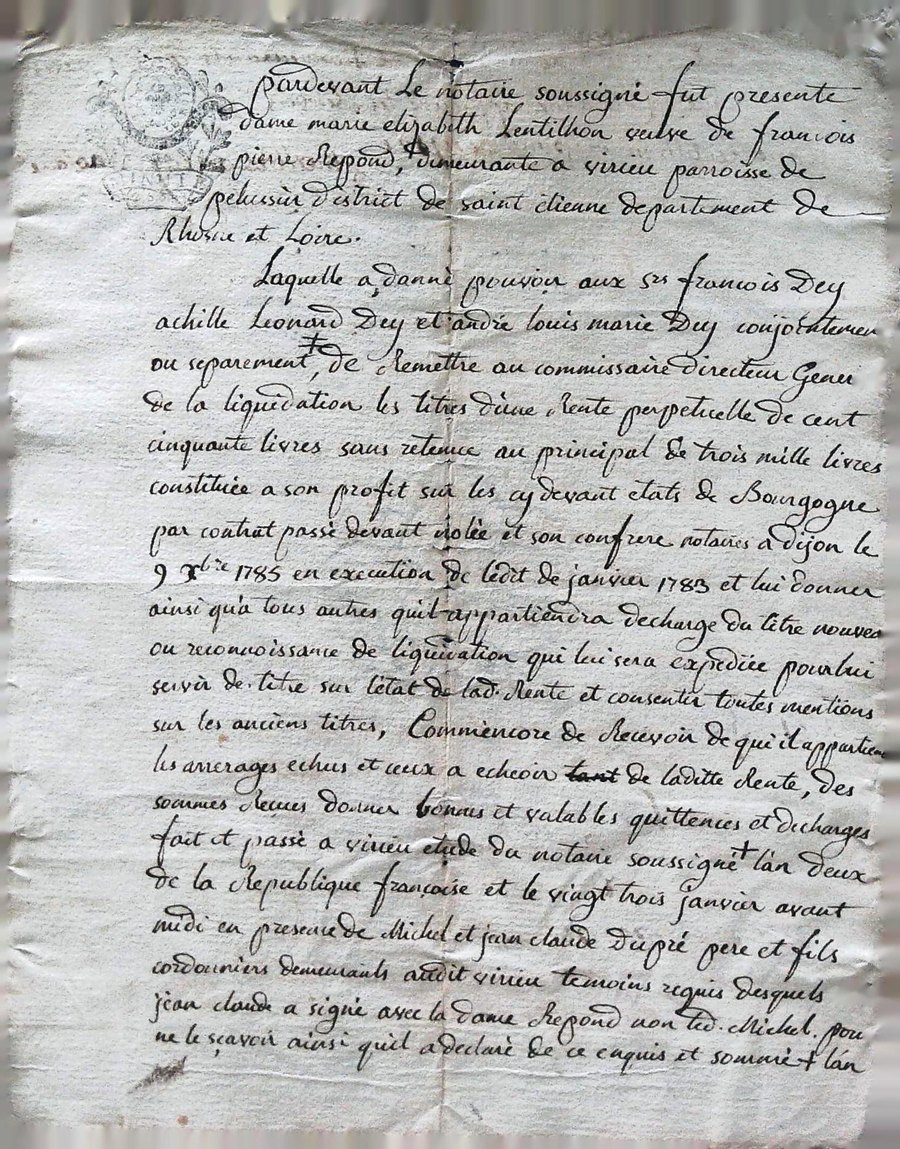 pardevant Le notaire soussigné fut presente
dame marie elizabeth Lentilhon veuve de francois
pierre Repond, demeurante a virieu parroisse de
pelussin district de saint etienne departement de
Rhosne et Loire.
Laquelle a donné pouvoir aux srs francois Dey
achille Leonard Dey et andré louis marie Dey conjointemen
ou separement ‡, de Remettre au commissaire directeur Gener
de la liquidation les titres d'une Rente perpetuelle de cent
cinquante livres sans retenue au principal de trois mille livres
constituée a son profit sur les cy devant etats de Bourgogne
par contrat passé devant et son confrere notaires a dijon le
9 xbre 1785 en execution de ledit de janvier 1783 et lui donner
ainsi qu'a tous autres quil appartiendra decharge du titre nouvea
ou reconnoissance de liquidation qui lui sera expediée pour lui
servir de titre sur l'état de lad. Rente et consentir toutes mentions
sur les anciens titres, Comme encore de Recevoir de qui il appartien
les arrerages echus et ceux a echeoir tant de laditte Rente, des
sommes Recues donner bonnes et valables quittences et decharges
fait et passé a virieu etude du notaire soussigné + l'an deux
de la Republique francaise et le vingt trois janvier avant
midi en presence de Michel et jean claude Dupré pere et fils
cordonniers demeurants audit virieu temoins requis desquels
jean claude a signé avec la dame Repond non led. Michel. pou
ne le sçavoir ainsi quil a declaré de ce enquis et sommé + l'an